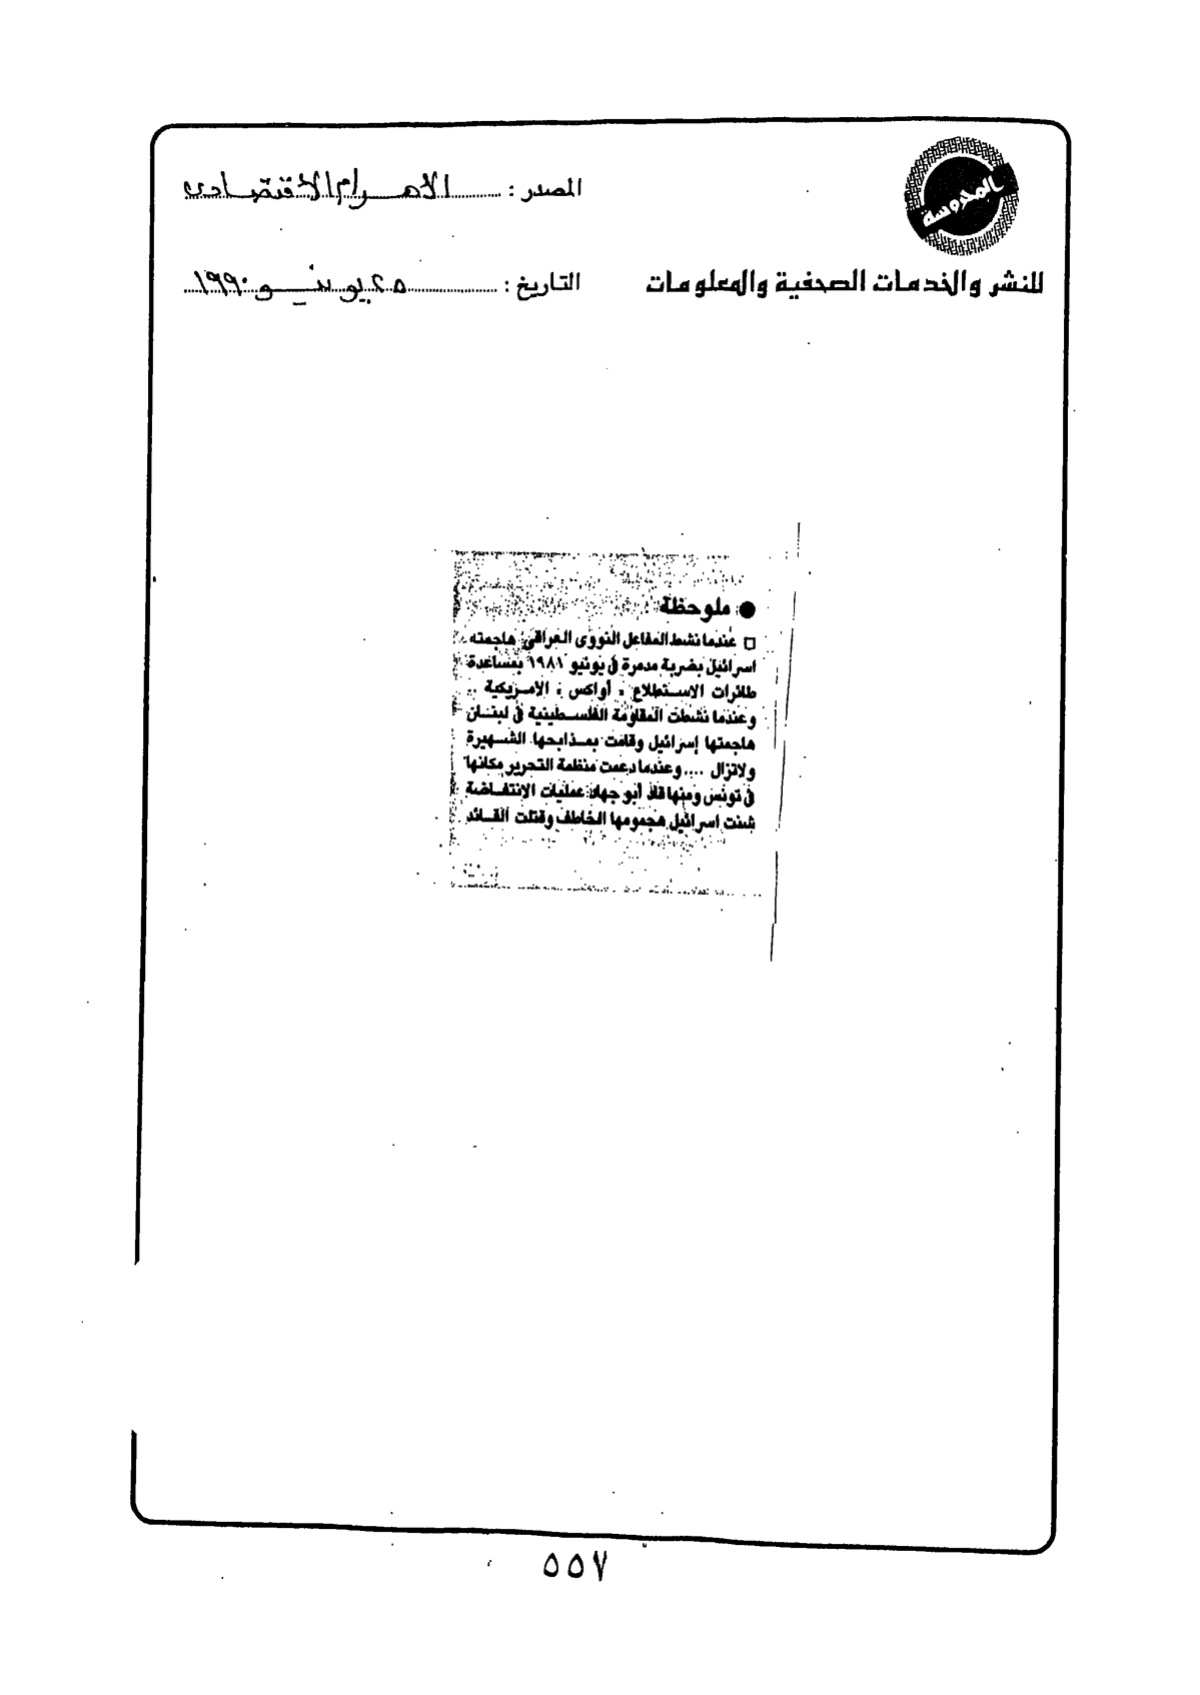 المحروسة
المصدر : الاهرام الاقتصادى
للنشر والخدمات الصحفية والمعلومات
التاريخ : ٢٥ يونيو ١٩٩٠
● ملوحظة
□ عندما نشط المفاعل النووى العراقى هاجمته
اسرائيل بضربة مدمرة فى يونيو ١٩٨١ بمساعدة
طائرات الاستطلاع « أواكس » الامريكية ..
وعندما نشطت المقاومة الفلسطينية فى لبنان
هاجمتها إسرائيل وقامت بمذابحها الشهيرة
ولاتزال .... وعندما دعمت منظمة التحرير مكانها
فى تونس ومنها قاد أبو جهاد عمليات الإنتفاضة
شنت اسرائيل هجومها الخاطف وقتلت القائد
٥٥٧